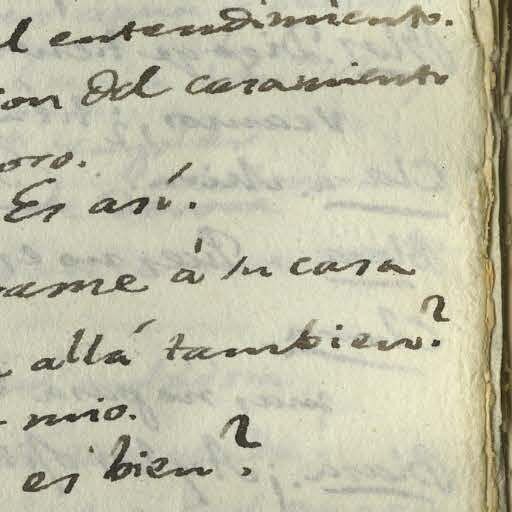 l entendimiento.
ion del casamiento
oro.
Es así.
rame à su casa
allá tambien?
mio.
es bien?